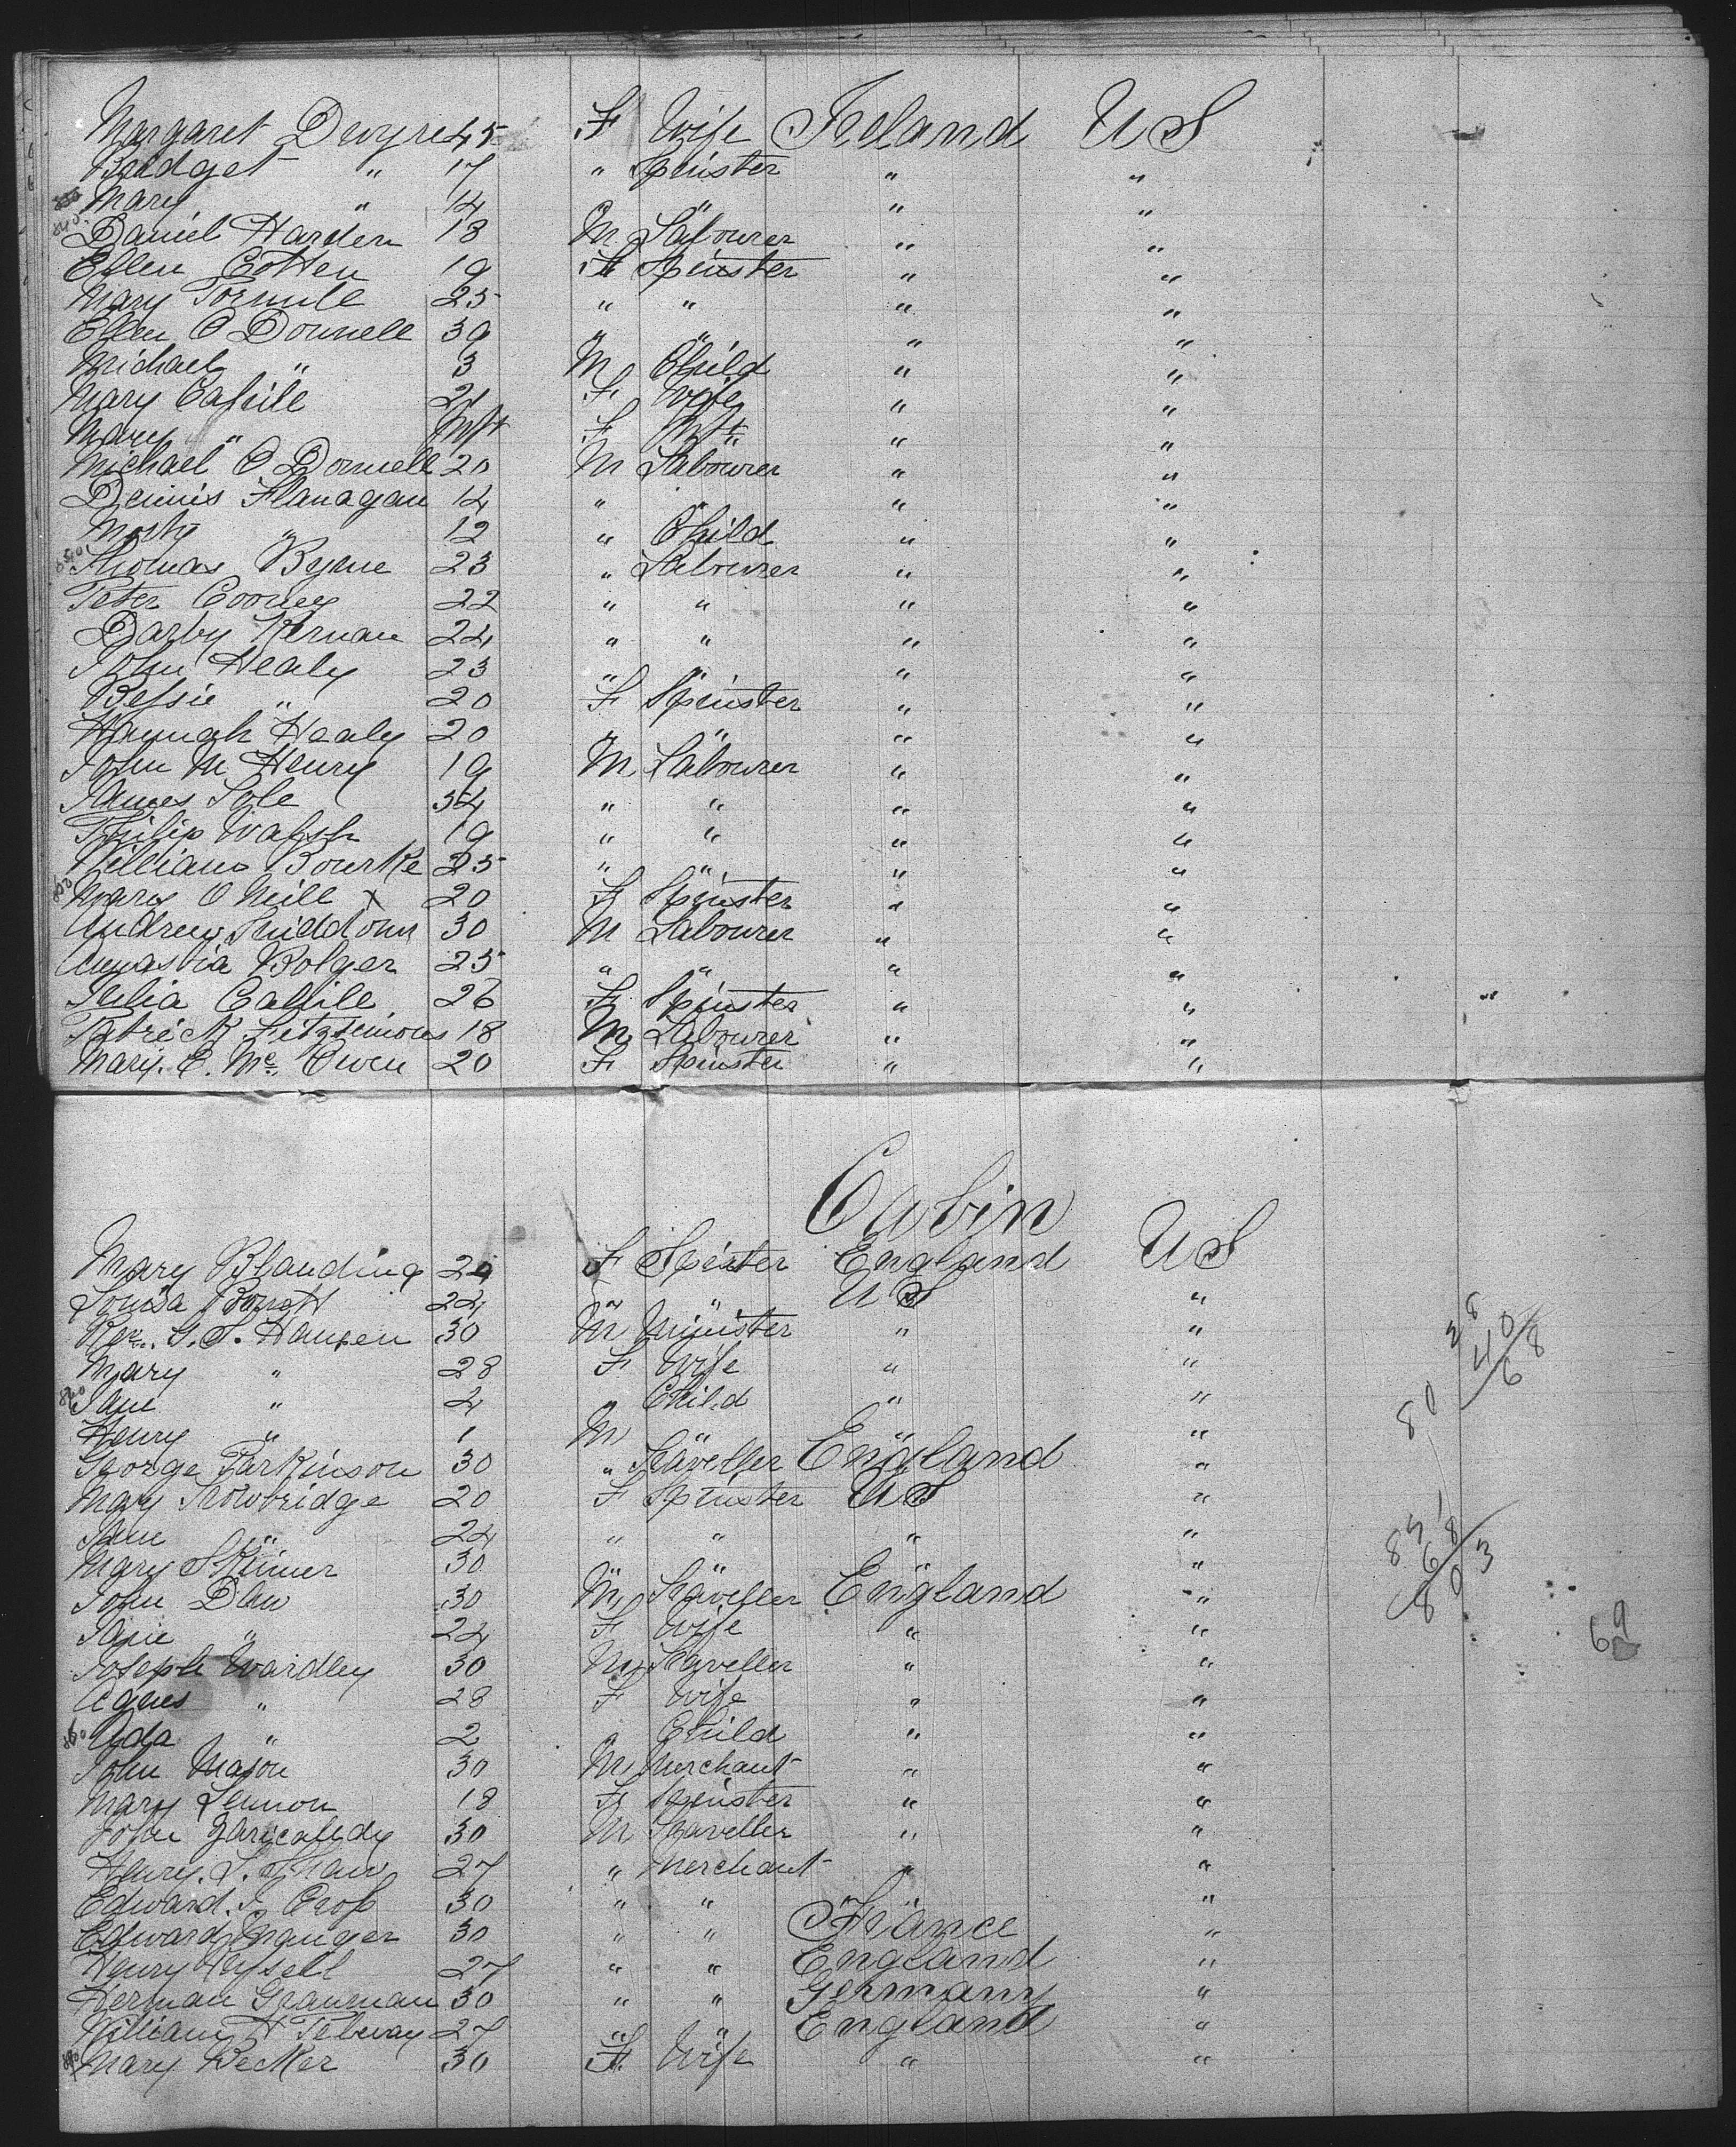 Margaret Dwyre 45 F Wife Ireland U S
Bridget " 17 " Spinster " "
Mary " 14 " " " "
Daniel Harden 18 M Labourer " "
Ellen Cotten 19 F Spinster " "
Mary 25 " " " "
Ellen O Donnell 39 " " " "
Michael " 3 M Child " "
Mary Cahile 21 F Wife " "
Mary " Inft F Inft " "
Michael O Donnell 20 M Labourer " "
Dennis Flanagan 14 " " " "
Morty " 12 " Child " "
Thomas Byrne 23 " Labourer " "
Peter Cooney 22 " " " "
Darby Kernan 24 " " " "
John Healy 23 " " " "
Bessie " 20 F Spinster " "
Hannah Healy 20 " " " "
John Mc Henry 19 M Labourer " "
James Sole 34 " " " "
Philip Walsh 19 " " " "
William Bourke 25 " " " "
Mary O Neill x 20 F Spinster " "
Andrew 30 M Labourer " "
Annastia Bolger 25 " " " "
Julia Cahile 26 F Spinster " "
Patrick Fitzsimons 18 M Labourer " "
Mary. E. Mc. Owen 20 F Spinster " "
Cabin
Mary Blanding 29 F Spister England U S
Louisa 24 " " U S "
Rev. G. S. Hausen 30 M Minister " "
Mary " 28 F Wife " "
Jane " 2 " Child " "
Henry " 1 M " " "
George Parkinson 30 " Traveller England "
Mary Trowbridge 20 F Spinster U S "
Jane " 24 " " " "
Mary Skinner 30 " " " "
John Daw 30 M Traveller England "
Jane " 24 F Wife " "
Joseph Wardley 30 M Traveller " "
Agnes " 28 F Wife " "
Ada " 2 " Child " "
John Mason 30 M Merchant " "
Mary Lennon 18 F Spinster " "
John 30 M Traveller " "
Henry. S. Shaw 27 " Merchant " "
Edward. J. Cross 30 " " " "
Edward Manger 30 " " France "
Henry 27 " " England "
Herman Grauman 30 " " Germany "
William H Tebway 27 " " England "
Mary Becker 30 F Wife " "
28
40
68
80
835
68
803
69